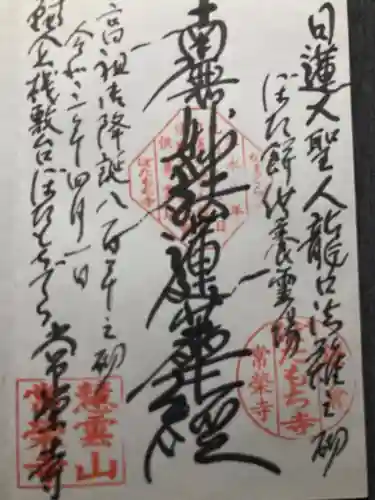 日蓮大聖人龍口法難之砌
ぼた餅供養霊場
南無妙法蓮華経
高祖御降誕八百年之砌
令和三年四月一日
桟敷台ぼたもちでら
常栄寺
ぼたもち寺
常栄寺
慧雲山
常栄寺